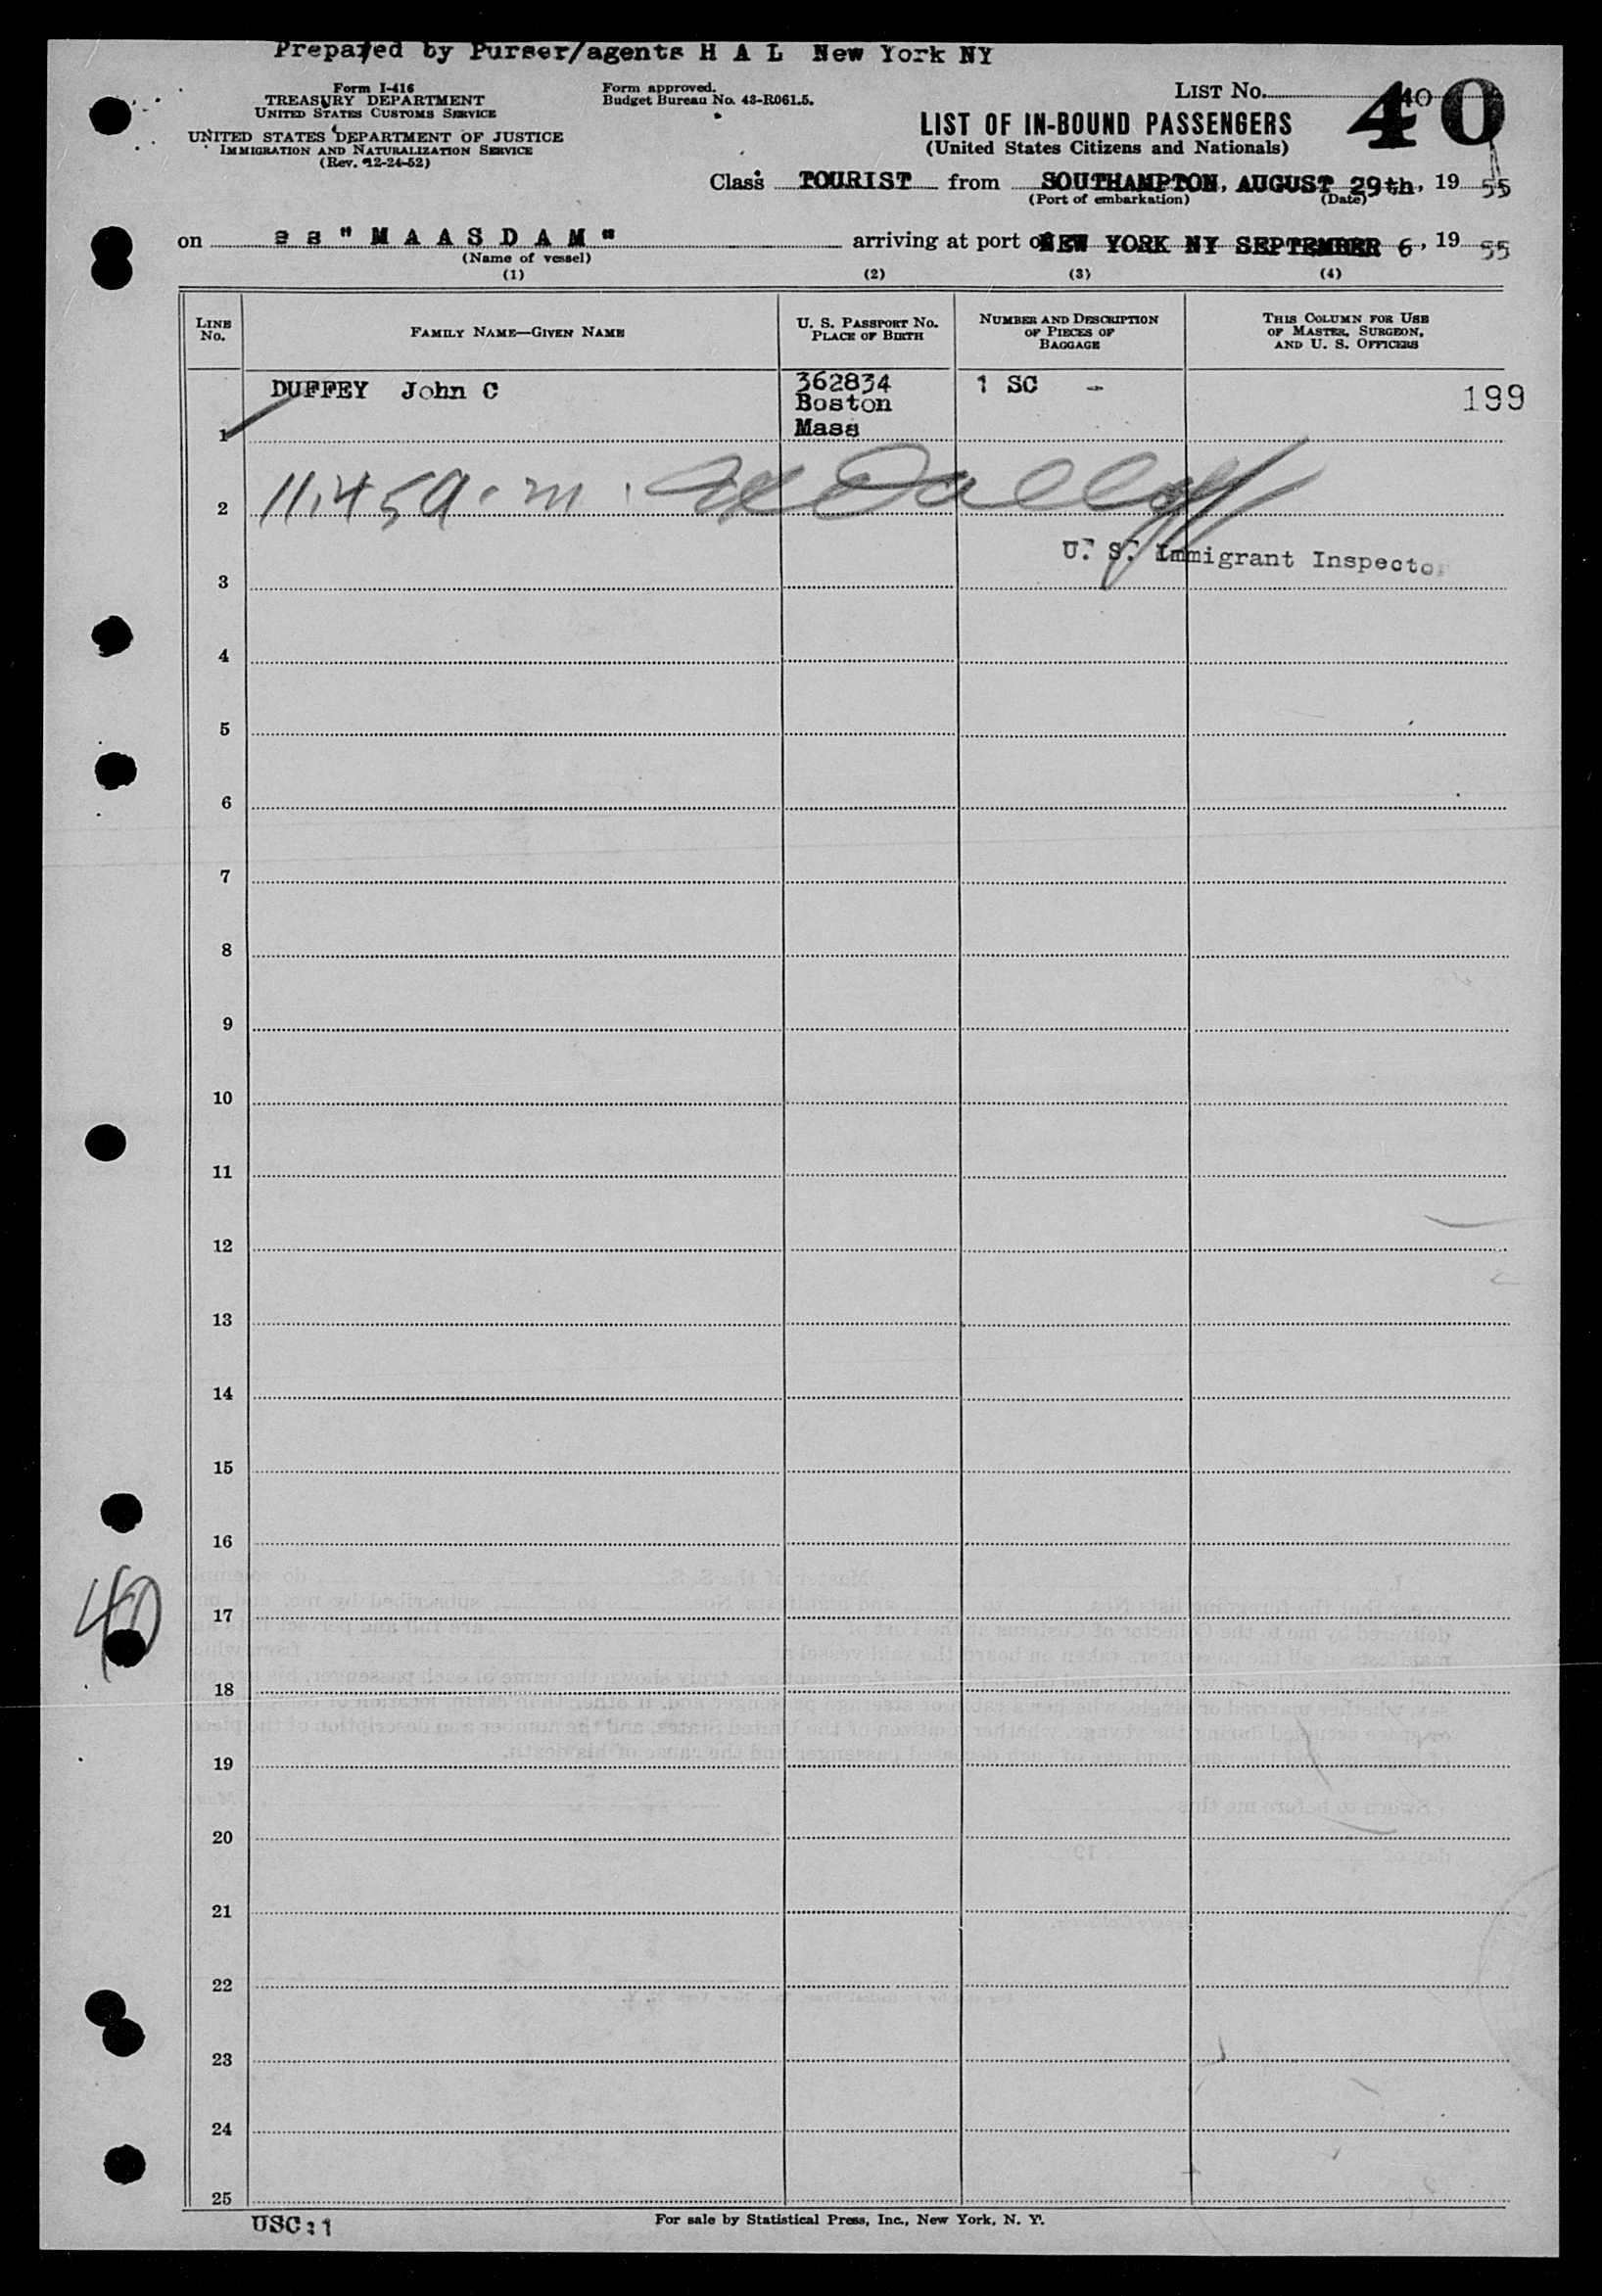 Prepared by Purser/agents H A L New York NY
Form I-416
TREASURY DEPARTMENT
UNITED STATES CUSTOMS SERVICE
UNITED STATES DEPARTMENT OF JUSTICE
IMMIGRATION AND NATURALIZATION SERVICE
(Rev. 12-24-52)
Form approved.
Budget Bureau No. 43-R061.5.
LIST No. 40
40
LIST OF IN-BOUND PASSENGERS
(United States Citizens and Nationals)
Class TOURIST from SOUTHAMPTON, AUGUST 29th, 19 55
(Port of embarkation) (Date)
on s s "M A A S D A M" arriving at port of NEW YORK NY SEPTEMBER 6, 19 55
(Name of vessel)
(1) (2) (3) (4)
LINE No.
FAMILY NAME—GIVEN NAME
U. S. PASSPORT No.
PLACE OF BIRTH
NUMBER AND DESCRIPTION
OF PIECES OF
BAGGAGE
THIS COLUMN FOR USE
OF MASTER, SURGEON,
AND U. S. OFFICERS
1 DUFFEY John C 362834 1 SC - 199
Boston
Mass
2 11.45 a.m.
U. S. Immigrant Inspector
3
4
5
6
7
8
9
10
11
12
13
14
15
16
40
17
18
19
20
21
22
23
24
25
USC:1
For sale by Statistical Press, Inc., New York, N. Y.